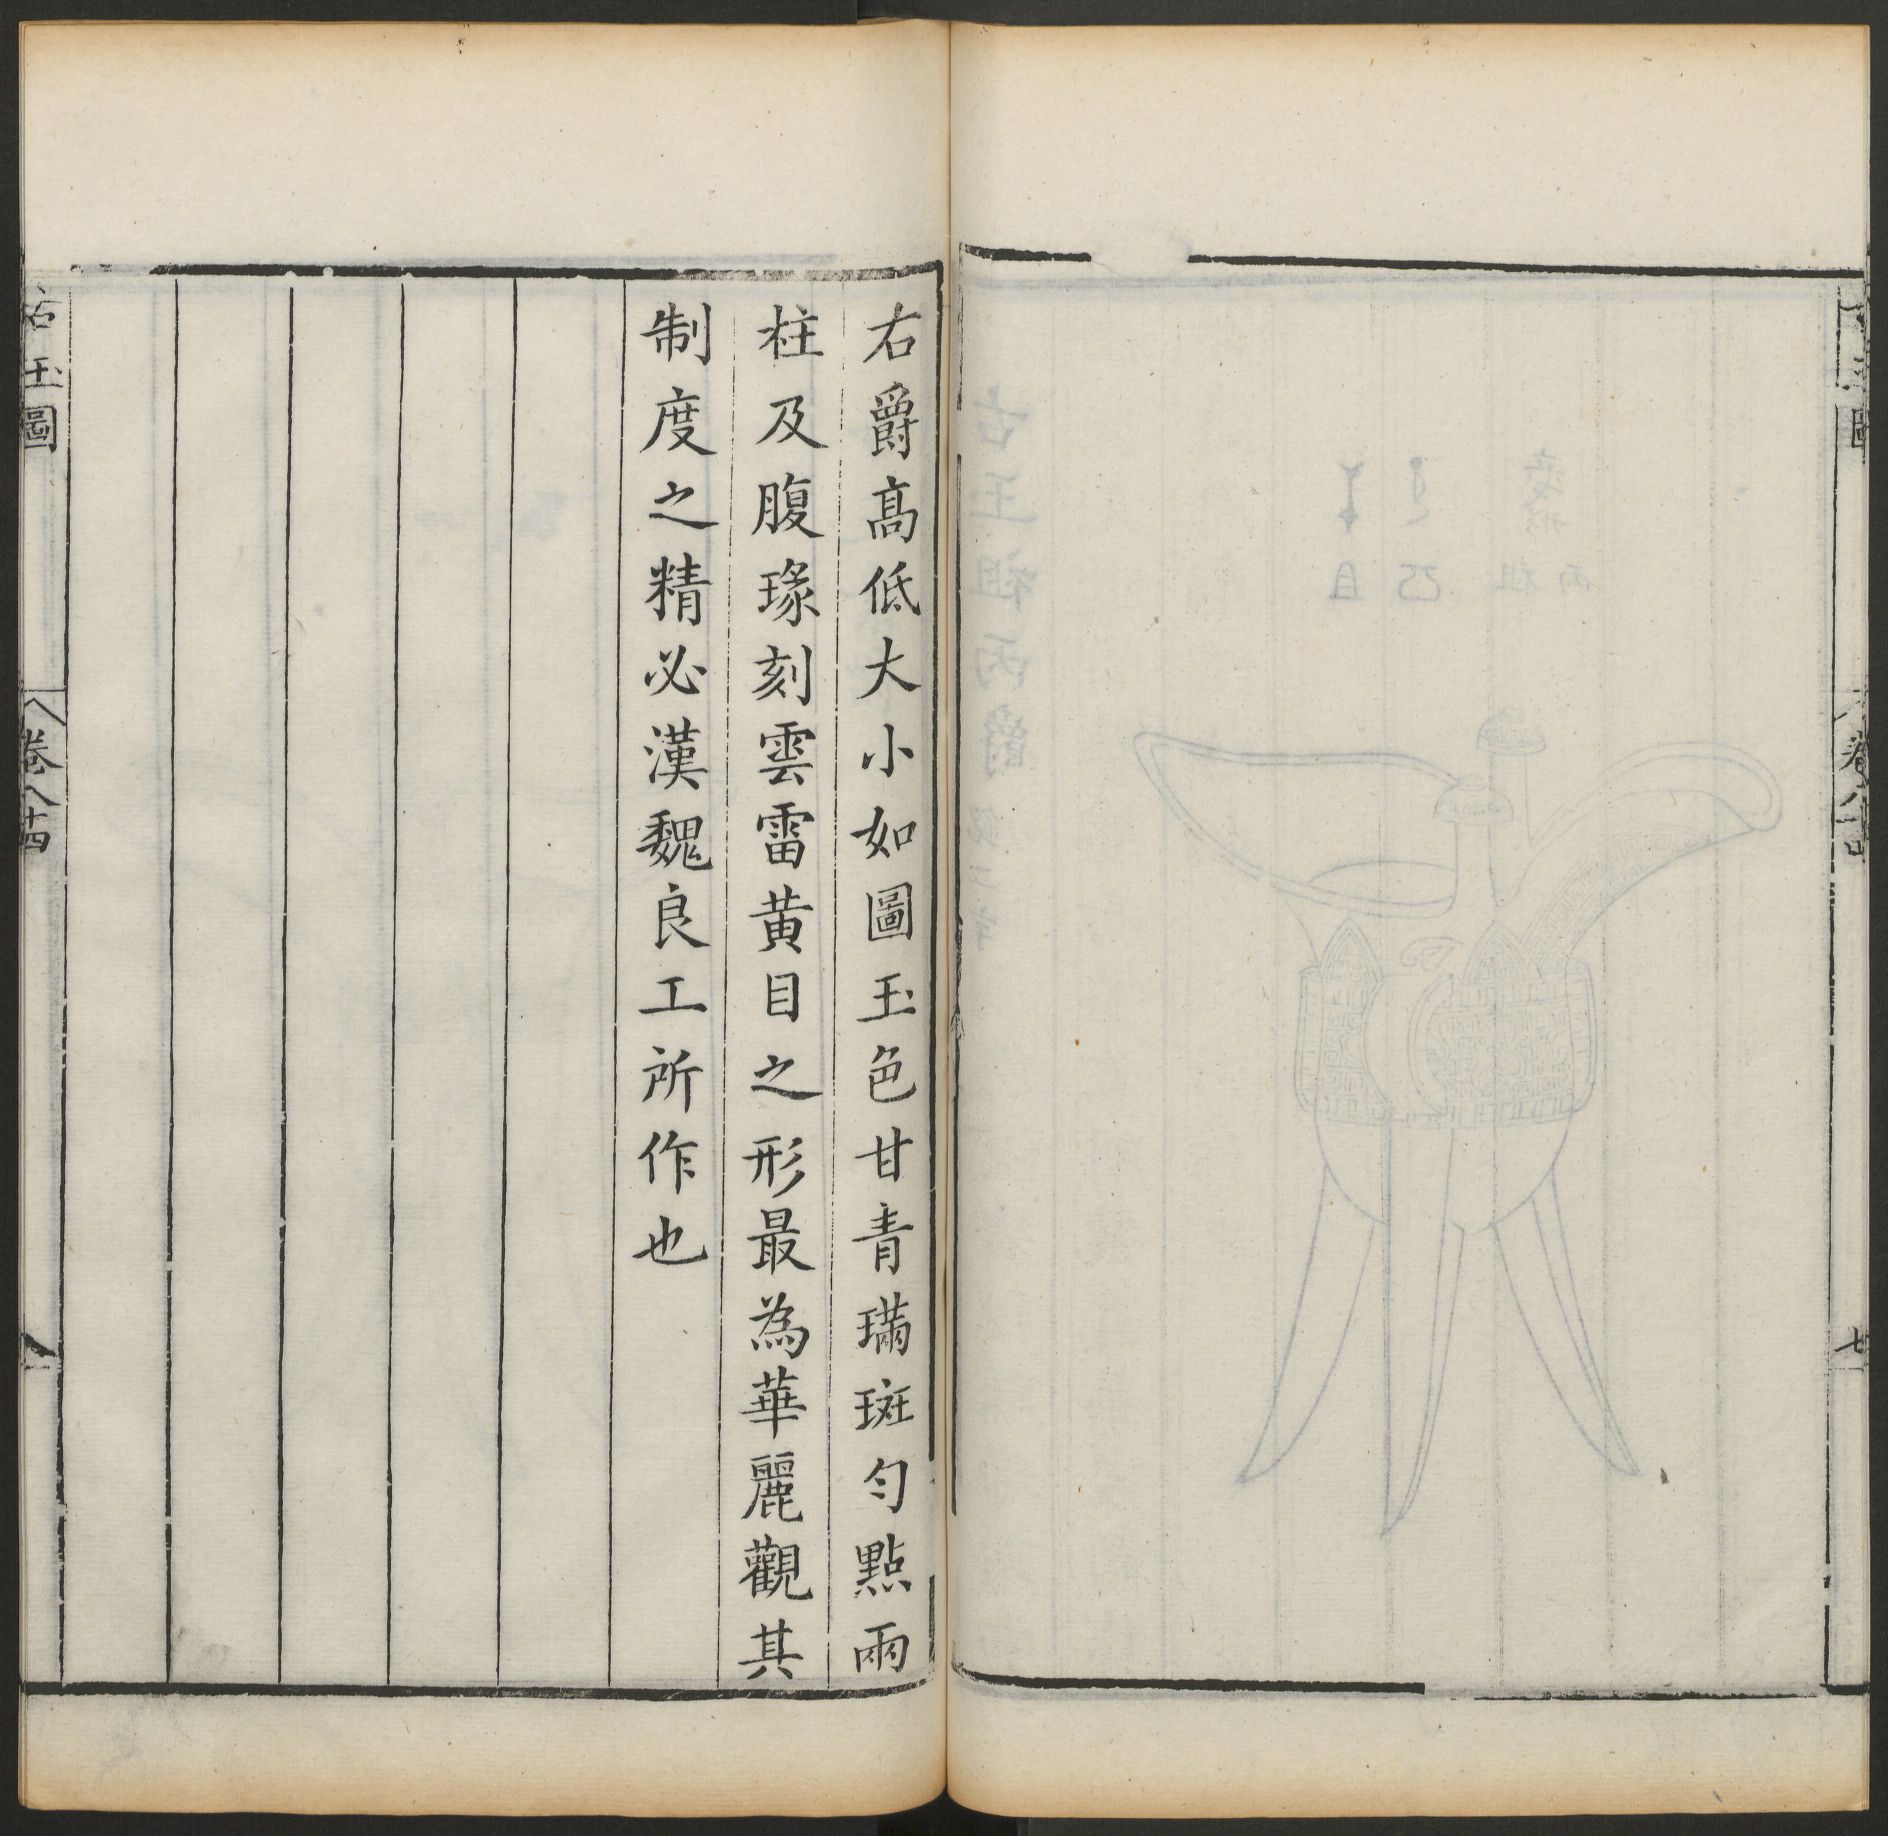 右爵高低大小如圖玉色甘青璊斑勻點兩
柱及腹瑑刻雲雷黃目之形最為華麗觀其
制度之精必漢魏良工所作也
古玉圖
卷八十四
七